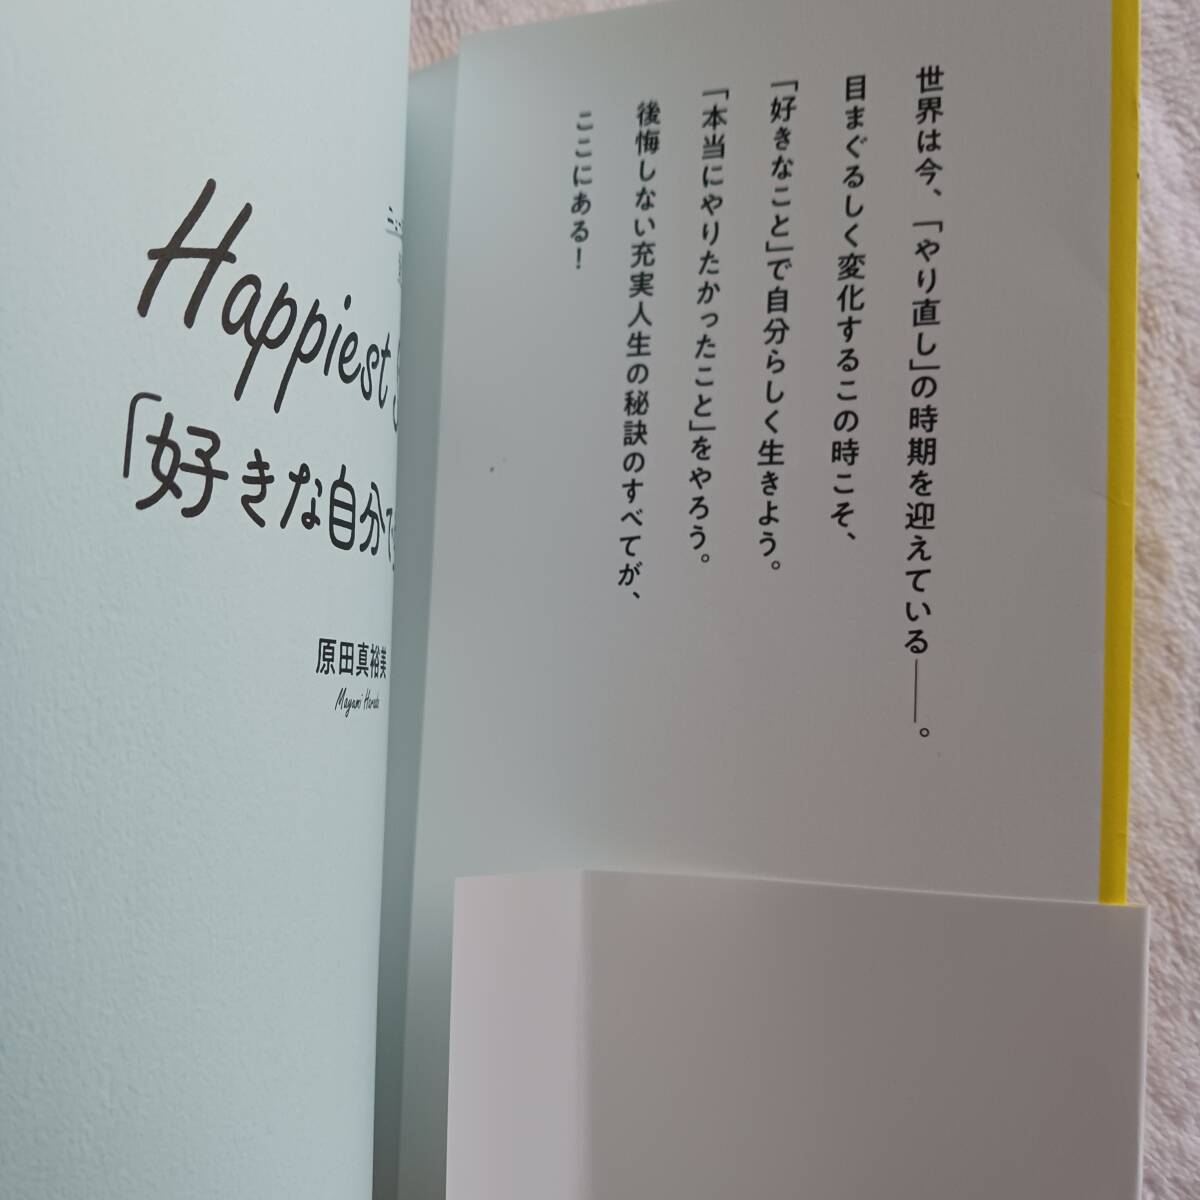 世界は今、「やり直し」の時期を迎えている――。
目まぐるしく変化するこの時こそ、
「好きなこと」で自分らしく生きよう。
「本当にやりたかったこと」をやろう。
後悔しない充実人生の秘訣のすべてが、
ここにある！
Happiest
「好きな自分で
原田真裕美
Mayumi Harada